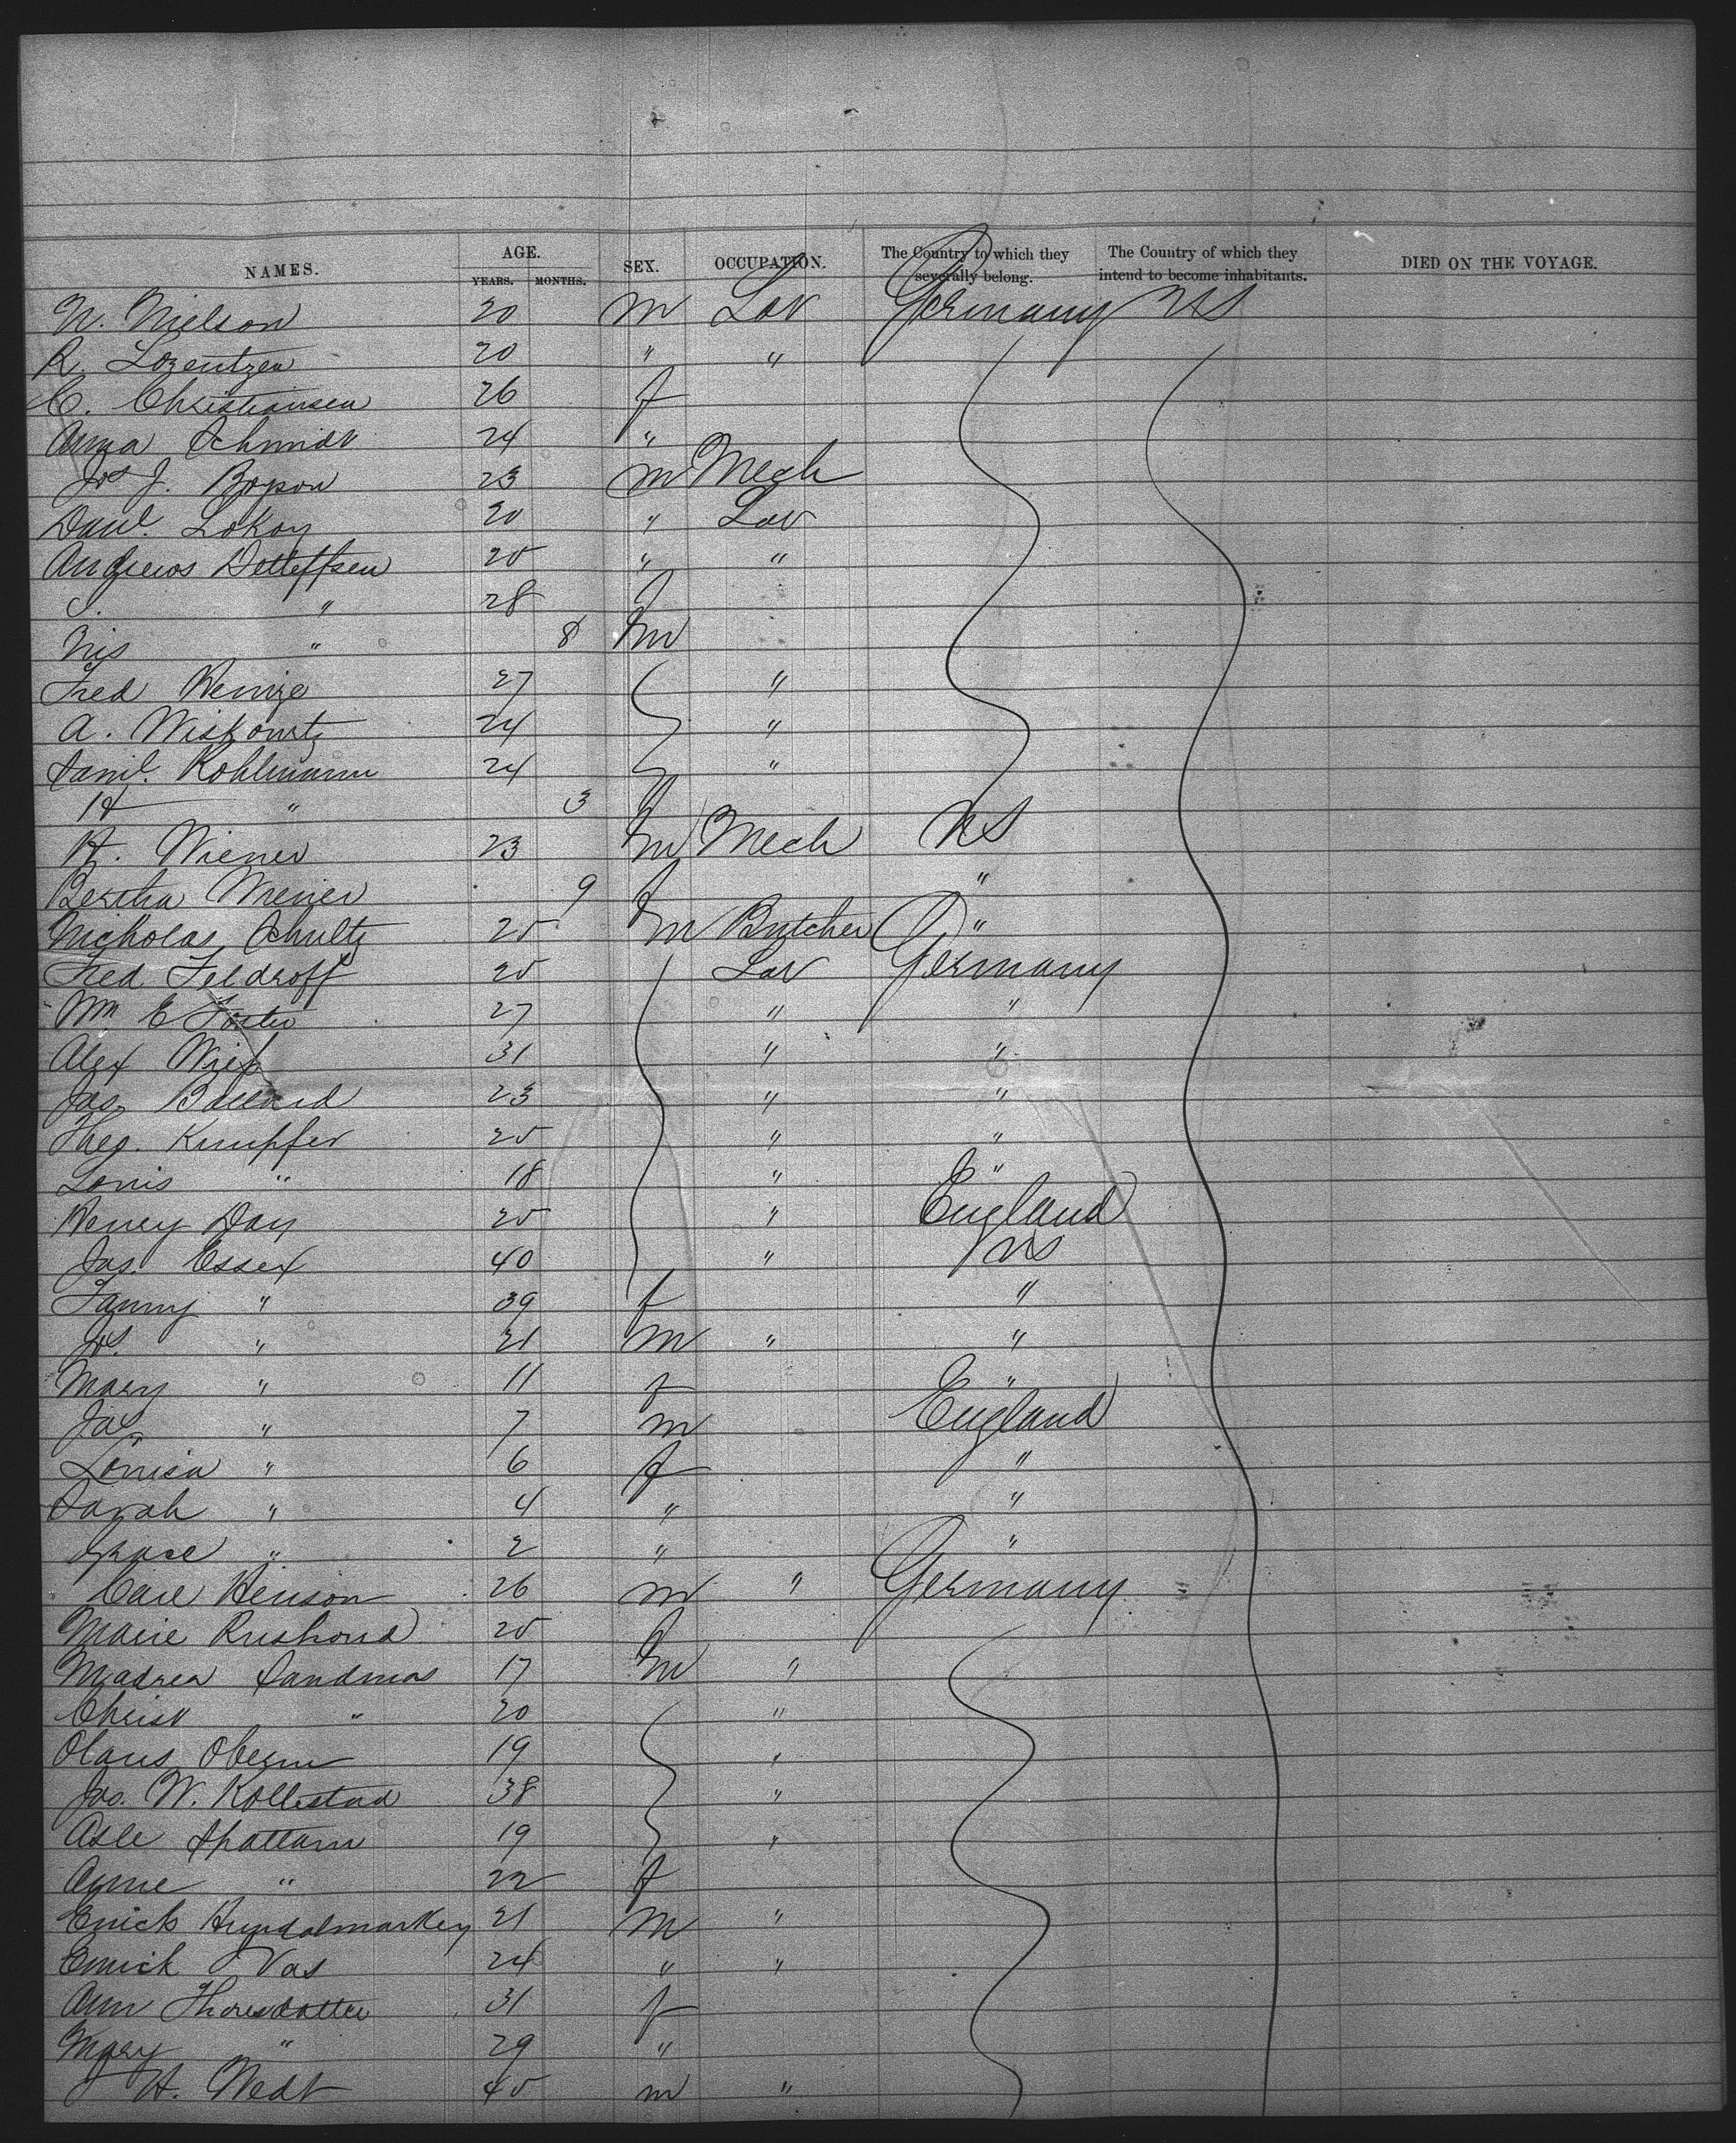 NAMES. AGE. SEX. OCCUPATION. The Country to which they severally belong. The Country of which they intend to become inhabitants. DIED ON THE VOYAGE.
YEARS. MONTHS.
N. Nielson 20 m Lab Germany US
R. Lorentzen 20 " "
C. Christiansen 26 f
Anna Schmidt 24 "
Jos J. Boyson 23 m Mech
Danl. Lokoy 20 " Lab
Andreios Detleffsen 25 " "
C. " 28 f
Nis " 8 m
Fred 27 "
A. Wiskowitz 24 "
Saml. Kohlmann 24 "
H " 3 f
H. Wiener 23 m Mech US
Bertha Meier 9 f "
Nicholas Schultz 25 m Butcher "
Fred Feldroff 25 Lab Germany
Wm E Foster 27 " "
Alex 31 " "
Jas. Ballard 23 " "
Theo. Kumpfer 25 " "
Louis " 18 " "
Henry Day 25 " England
Jas. Essex 40 " US
Fanny " 39 f "
Js. " 21 m " "
Mary " 11 f "
Jas " 7 m England
Louisa " 6 f "
Sarah " 4 " "
Grace " 2 " "
Carl Henson 26 m " Germany
Marie 25 f
Madrea Sandmos 17 m "
Christ " 20 "
Olaus Oberm 19 "
Jos. W. Kollestad 38 "
Asle Spattum 19 "
Anne " 22 f
Enick Hundalmarkey 21 m "
Emick Vas 24 " "
Ann Thoresdatter 31 f
Mary " 29 "
H. Wedt 45 m "